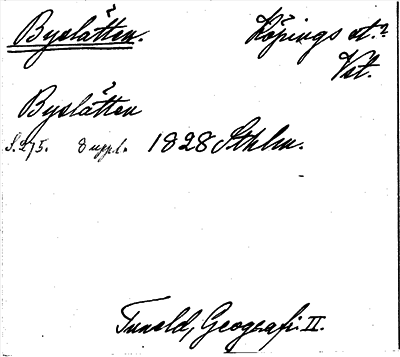 Byslätten. Köpings st.?
Vst.
Byslätten
S. 275. 8 uppl. 1828 Sthlm.
Tuneld, Geografi II.